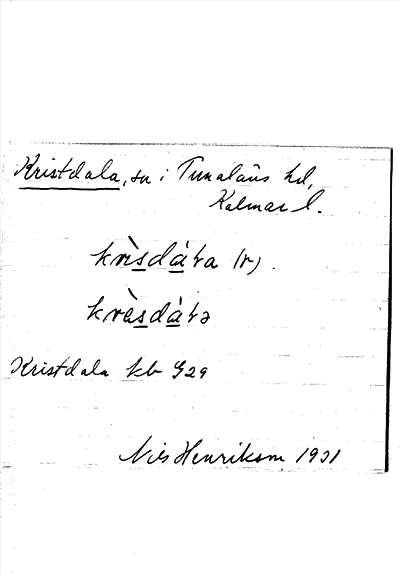 Kristdala, sn i Tunaläns hd,
Kalmar l.
krìsdáɫa (r)
krèsdáɫə
Kristdala kb G29
Nils Henrikson 1931